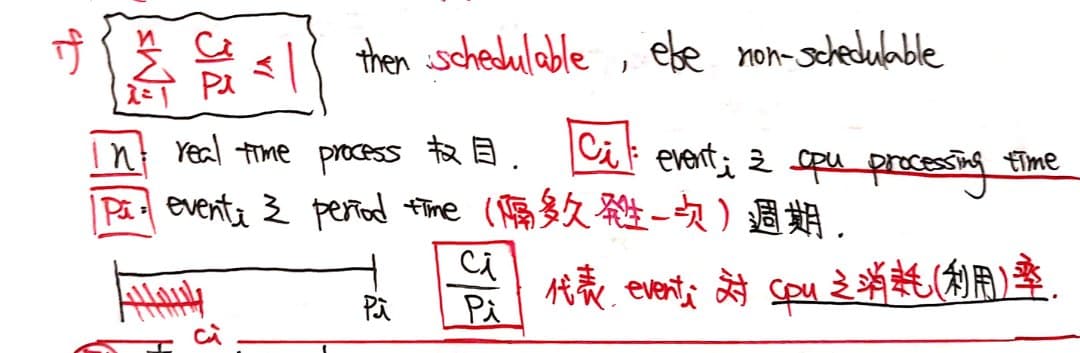 if $\sum_{i=1}^{n} \frac{C_i}{P_i} \le 1$ then schedulable , else non-schedulable
n: real time process 数目. Ci: event_i 之 cpu processing time
Pi: event_i 之 period time (隔多久発生一次) 週期.
Pi
Ci
$\frac{C_i}{P_i}$ 代表 event_i 对 cpu 之消耗(利用)率.